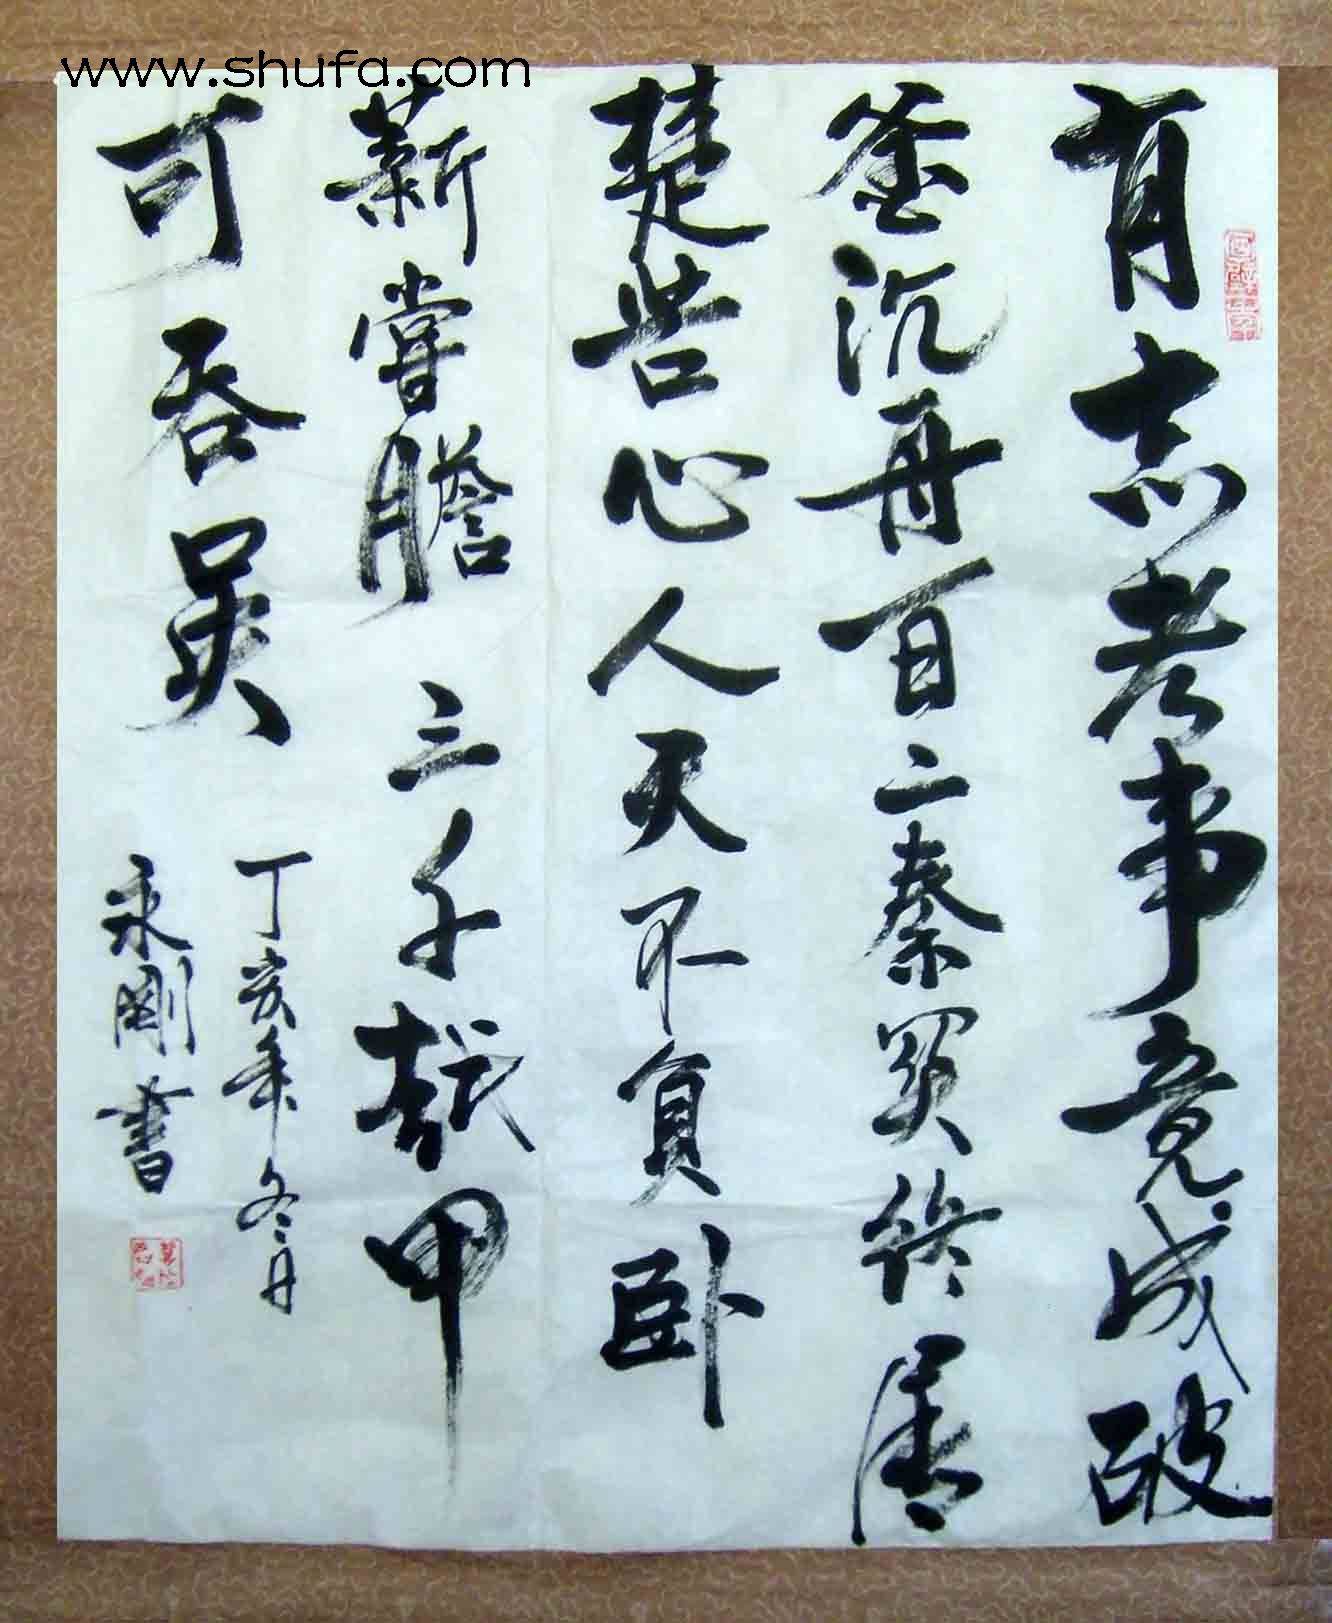 www.shufa.com
有志者事竟成破
釜沉舟百二秦関终属
楚苦心人天不負卧
薪嘗膽三千越甲
可吞吴
丁亥年冬月
永剛書